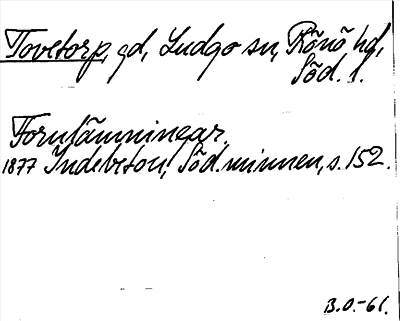 Tovetorp, gd, Ludgo sn, Rönö hd,
Söd. l.
Fornlämningar.
1877 Indebetou, Söd. minnen, s. 152.
B.O.-61.